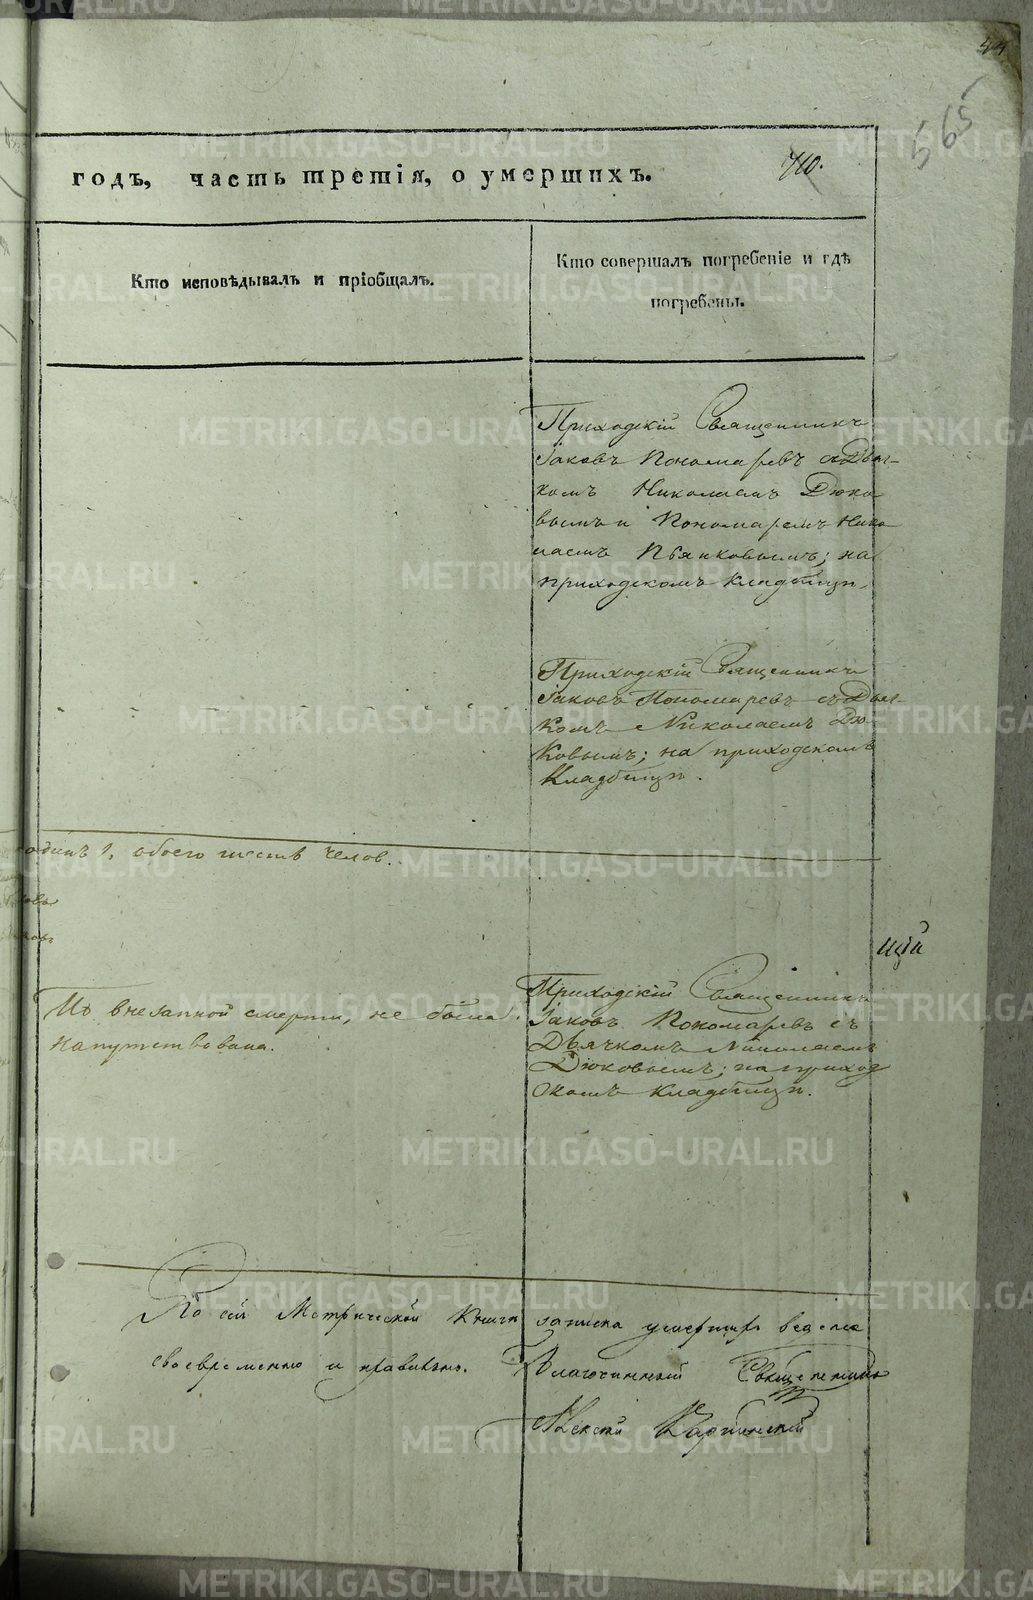 44
565
годъ, часть третія, о умершихъ.
710.
Кто исповѣдывалъ и пріобщалъ.
Кто совершалъ погребеніе и гдѣ
погребены.
Приходскій Священникъ
Іаковъ Пономаревъ съ Дьяч-
комъ Николаемъ Дюко
вымъ и Пономаремъ Нико
лаемъ Пьянковымъ; на
приходскомъ кладбищѣ.
Приходскій Священникъ
Іаковъ Пономаревъ съ Дьяч-
комъ Николаемъ Дю-
ковымъ; на приходскомъ
кладбищѣ.
одинъ 1, обоего шесть челов.
щій
По внезапной смерти, не была
напутствована.
Приходскій Священникъ
Іаковъ Пономаревъ съ
Дьячкомъ Николаемъ
Дюковымъ; на приход
скомъ кладбищѣ.
По сей Метрической книгѣ записка умершихъ ведена
своевременно и правильно. Благочинный Священникъ
METRIKI.GASO-URAL.RU